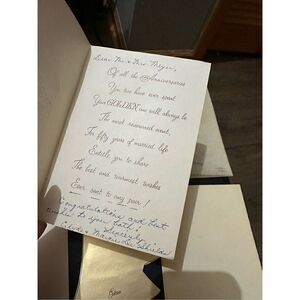 Dear Mr. & Mrs. Meyer,
Of all the Anniversaries
You two have ever spent
Your GOLDEN one will always be
The most renowned event,
For fifty years of married life
Entitle you to share
The best and warmest wishes
Ever sent to any pair!
Congratulations and best
wishes to you both!
Sincerely,